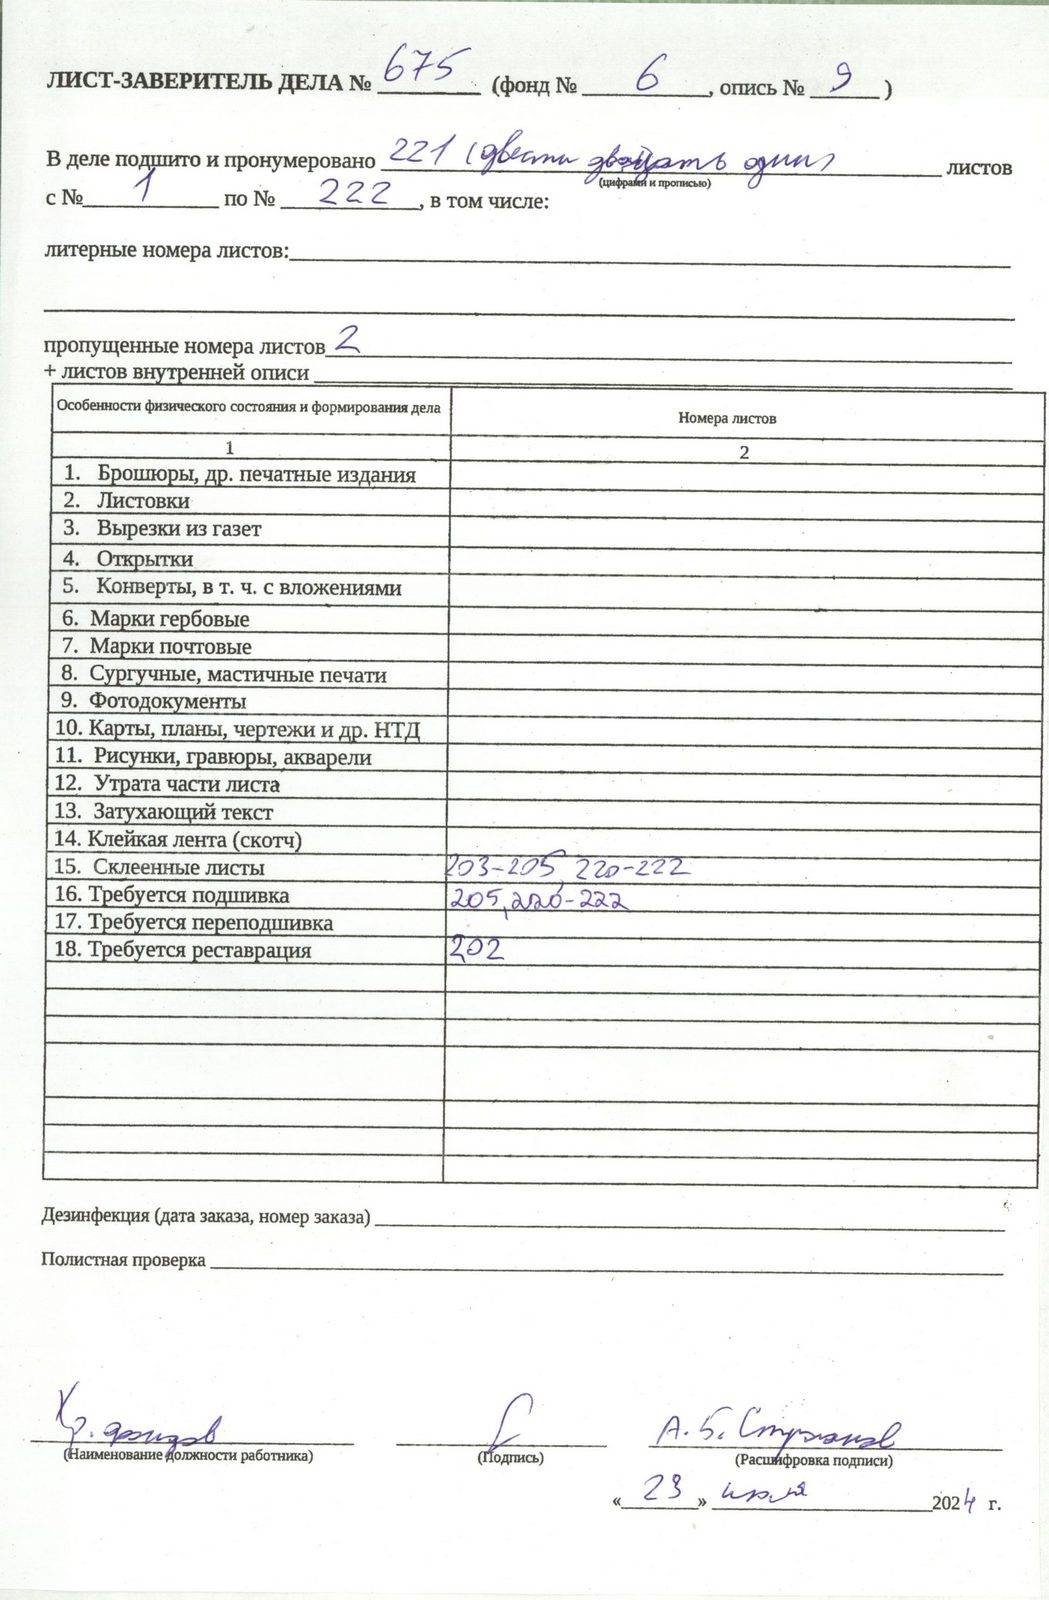 ЛИСТ-ЗАВЕРИТЕЛЬ ДЕЛА № 675 (фонд № 6, опись № 9)
В деле подшито и пронумеровано 221 (двести двадцать один) листов
(цифрами и прописью)
с № 1 по № 222, в том числе:
литерные номера листов:
пропущенные номера листов 2
+ листов внутренней описи
Особенности физического состояния и формирования дела Номера листов
1 2
1. Брошюры, др. печатные издания
2. Листовки
3. Вырезки из газет
4. Открытки
5. Конверты, в т. ч. с вложениями
6. Марки гербовые
7. Марки почтовые
8. Сургучные, мастичные печати
9. Фотодокументы
10. Карты, планы, чертежи и др. НТД
11. Рисунки, гравюры, акварели
12. Утрата части листа
13. Затухающий текст
14. Клейкая лента (скотч)
15. Склеенные листы 203-205, 220-222
16. Требуется подшивка 205, 220-222
17. Требуется переподшивка
18. Требуется реставрация 202
Дезинфекция (дата заказа, номер заказа)
Полистная проверка
Хр. фондов А. Б.
(Наименование должности работника) (Подпись) (Расшифровка подписи)
« 23 » июля 2024 г.